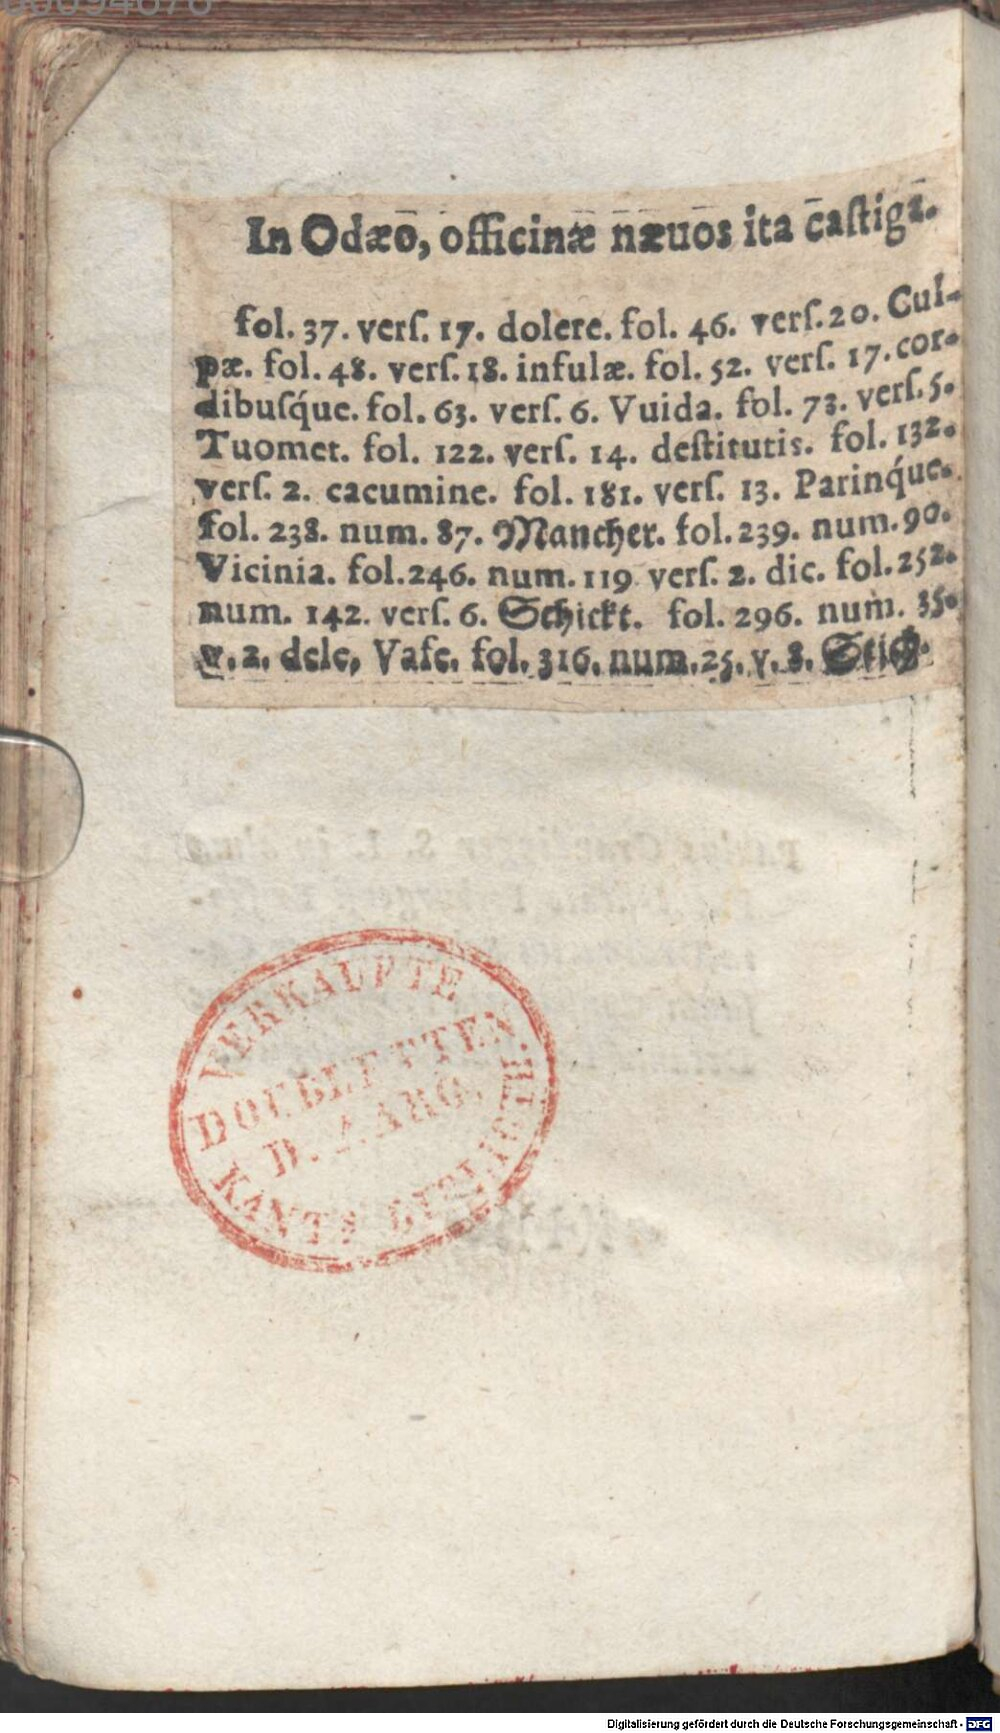 In Odæo, officinæ næuos ita castiga.
fol. 37. verſ. 17. dolere. fol. 46. verſ. 20. Cul-
pæ. fol. 48. verſ. 18. infulæ. fol. 52. verſ. 17. cor-
dibuſq́ue. fol. 63. verſ. 6. Vuida. fol. 73. verſ. 5.
Tuomet. fol. 122. verſ. 14. deſtitutis. fol. 132.
verſ. 2. cacumine. fol. 181. verſ. 13. Parinq́ue.
fol. 238. num. 87. Mancher. fol. 239. num. 90.
Vicinia. fol. 246. num. 119 verſ. 2. dic. fol. 252.
num. 142. verſ. 6. Schickt. fol. 296. num. 35.
v. 2. dele, Vaſe. fol. 316. num. 25. v. 8.
VERKAUFTE
DOUBLETTEN
D. AARG.
KANTS BIBLIOTHEK
Digitalisierung gefördert durch die Deutsche Forschungsgemeinschaft - DFG